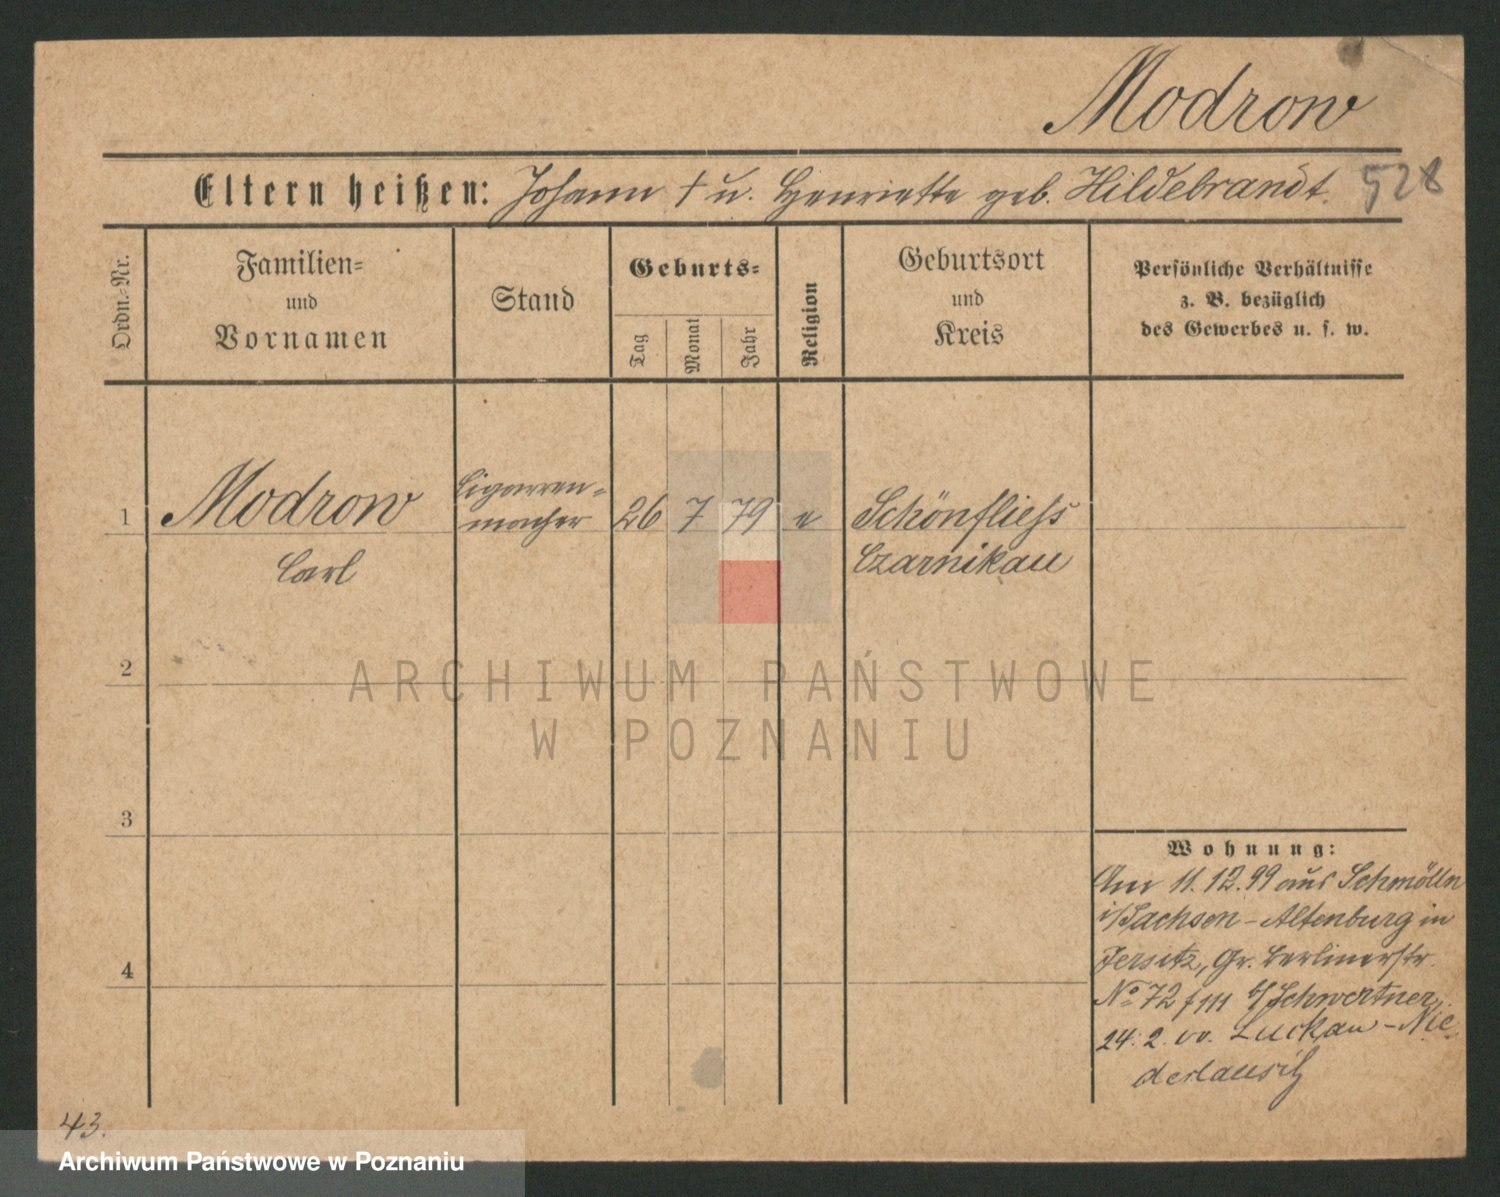 Modrow
Eltern heißen: Johann † u. Henriette geb. Hildebrandt. 528
Ordn.-Nr.
Familien-
und
Vornamen
Stand
Geburts-
Tag
Monat
Jahr
Religion
Geburtsort
und
Kreis
Persönliche Verhältnisse
z. B. bezüglich
des Gewerbes u. s. w.
1
Modrow
Carl
Cigarren-
macher
26 7 79 e
Schönfliess
Czarnikau
2
ARCHIWUM PAŃSTWOWE
W POZNANIU
3
4
Wohnung:
Am 11.12.99 aus Schmölln
i/Sachsen-Altenburg in
Jersitz, Gr. Berlinerstr.
No 72 III b/Schwertner.
24.2.00. Luckau-Nie-
derlausitz
43.
Archiwum Państwowe w Poznaniu